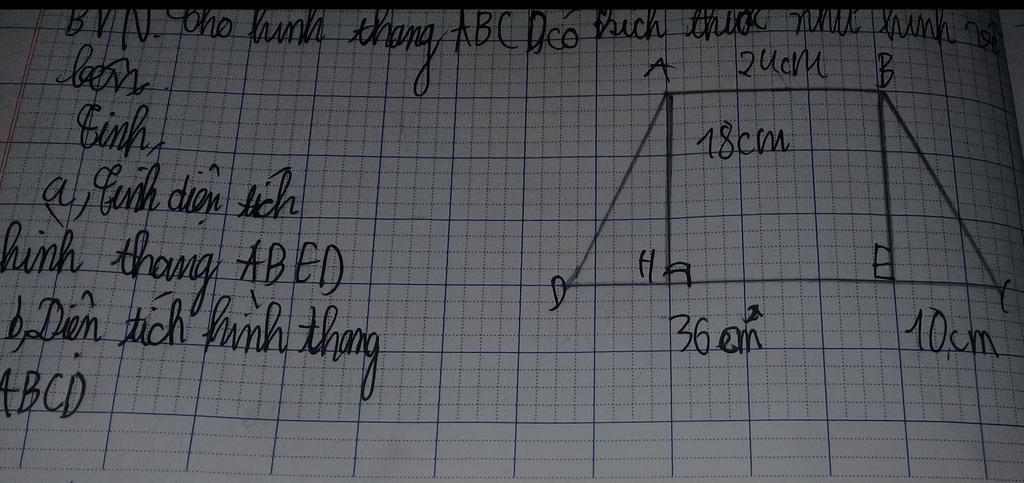 BVN. Cho hình thang ABCD có kích thước như hình
bên
Tính,
a, Tính diện tích
hình thang ABED
b, Diện tích hình thang
ABCD
A 24cm B
18cm
D H E C
36cm² 10cm